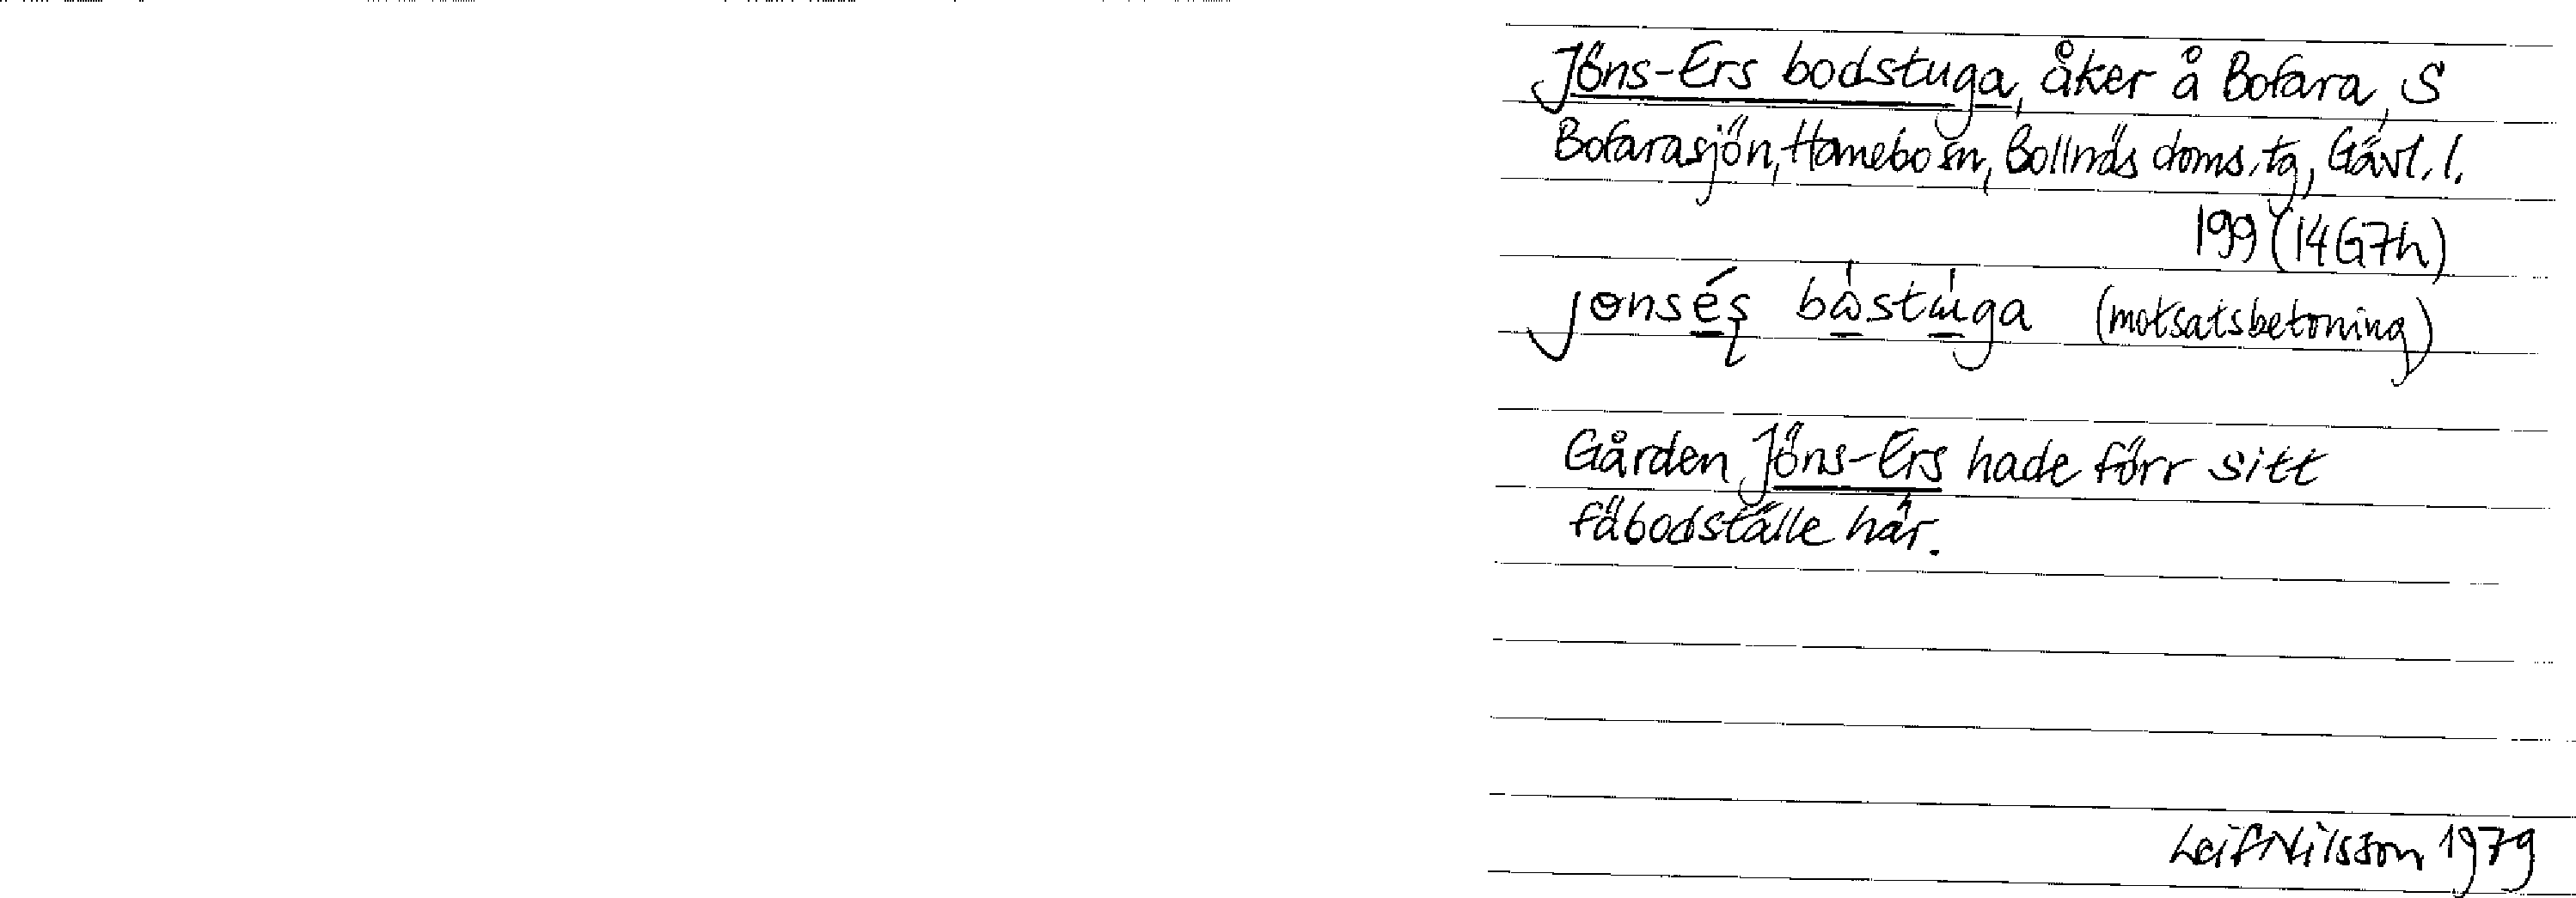 Jöns-Ers bodstuga, åker å Bofara, S
Bofarasjön, Hanebo sn, Bollnäs doms. tg, Gävl. l.
199 (14G7h)
(motsatsbetoning)
Gården Jöns-Ers hade förr sitt
fäbodställe här.
Leif Nilsson 1979